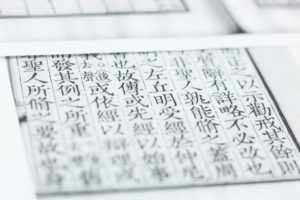 而正之以示勸戒其餘則
質辭有詳略不必改也
非聖人孰能脩之蓋周
之左丘明受經於仲尼
也故傳或先經以始事
去聲後或依經以辯理或
而發其例之所重舊
非聖人所脩之要故也